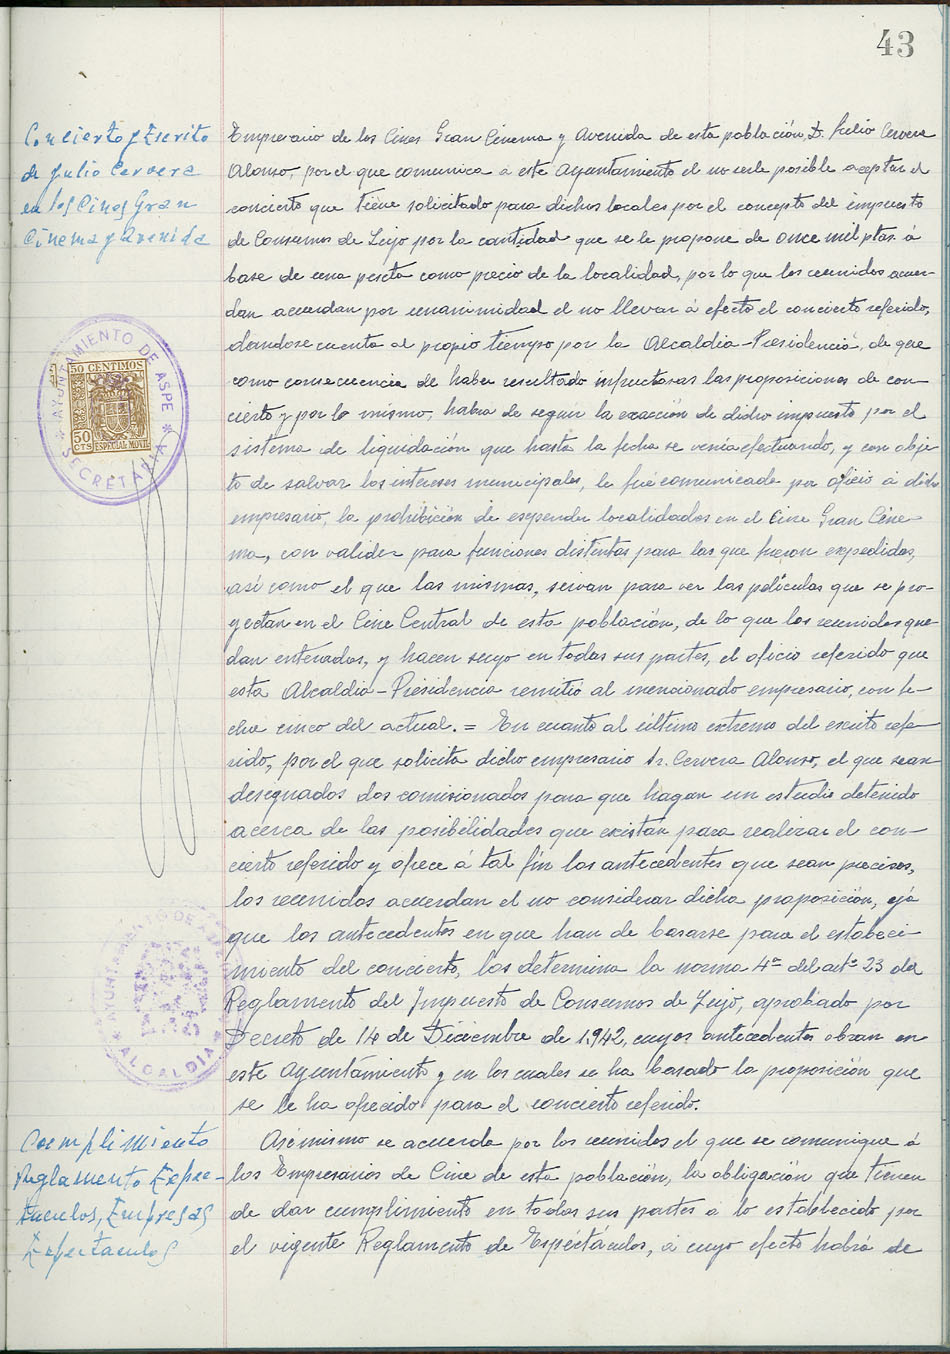 43
Concierto y Escrito
de Julio Cervera
en los Cines Gran
Cinema y Avenida
Empresario de los Cines Gran Cinema y Avenida de esta población, D. Julio Cervera
Alonso, por el que comunica a este Ayuntamiento el no serle posible aceptar el
concierto que tiene solicitado para dichos locales por el concepto del impuesto
de Consumos de Lujo por la cantidad que se le propone de once mil ptas. á
base de una peseta como precio de la localidad, por lo que los reunidos acuer-
dan acuerdan por unanimidad el no llevar á efecto el concierto referido,
dandose cuenta al propio tiempo por la Alcaldia-Presidencia, de que
como consecuencia de haber resultado infructosas las proposiciones de con-
cierto y por lo mismo, habra de seguir la exacción de dicho impuesto por el
sistema de liquidación que hasta la fecha se venia efectuando, y con obje-
to de salvar los intereses municipales, le fué comunicado por oficio á dicho
empresario, la prohibición de expender localidades en el Cine Gran Cine-
ma, con validez para funciones distintas para las que fueron expedidas,
asi como el que las mismas, sirvan para ver las peliculas que se pro-
yectan en el Cine Central de esta población, de lo que los reunidos que-
dan enterados, y hacen suyo en todas sus partes, el oficio referido que
esta Alcaldia-Presidencia remitió al mencionado empresario, con fe-
cha cinco del actual. = En cuanto al último extremo del escrito refe-
rido, por el que solicita dicho empresario Sr. Cervera Alonso, el que sean
designados dos comisionados para que hagan un estudio detenido
acerca de las posibilidades que existan para realizar el con-
cierto referido y ofrece á tal fin los antecedentes que sean precisos,
los reunidos acuerdan el no considerar dicha proposición, ya
que los antecedentes en que han de basarse para el estableci-
miento del concierto, los determina la norma 4ª del artº 23 del
Reglamento del Impuesto de Consumos de Lujo, aprobado por
Decreto de 14 de Diciembre de 1.942, cuyos antecedentes obran en
este Ayuntamiento y en los cuales se ha basado la proposición que
se le ha ofrecido para el concierto referido.
Cumplimiento
Reglamento Espec-
táculos, Empresas
Espectaculos
Asimismo se acuerda por los reunidos el que se comunique á
los Empresarios de Cine de esta población, la obligación que tienen
de dar cumplimiento en todas sus partes a lo establecido por
el vigente Reglamento de Espectáculos, á cuyo efecto habrá de
AYUNTAMIENTO DE ASPE
SECRETARIA
50 CENTIMOS
50 CTS ESPECIAL MOVIL
AYUNTAMIENTO DE ASPE
ALCALDIA